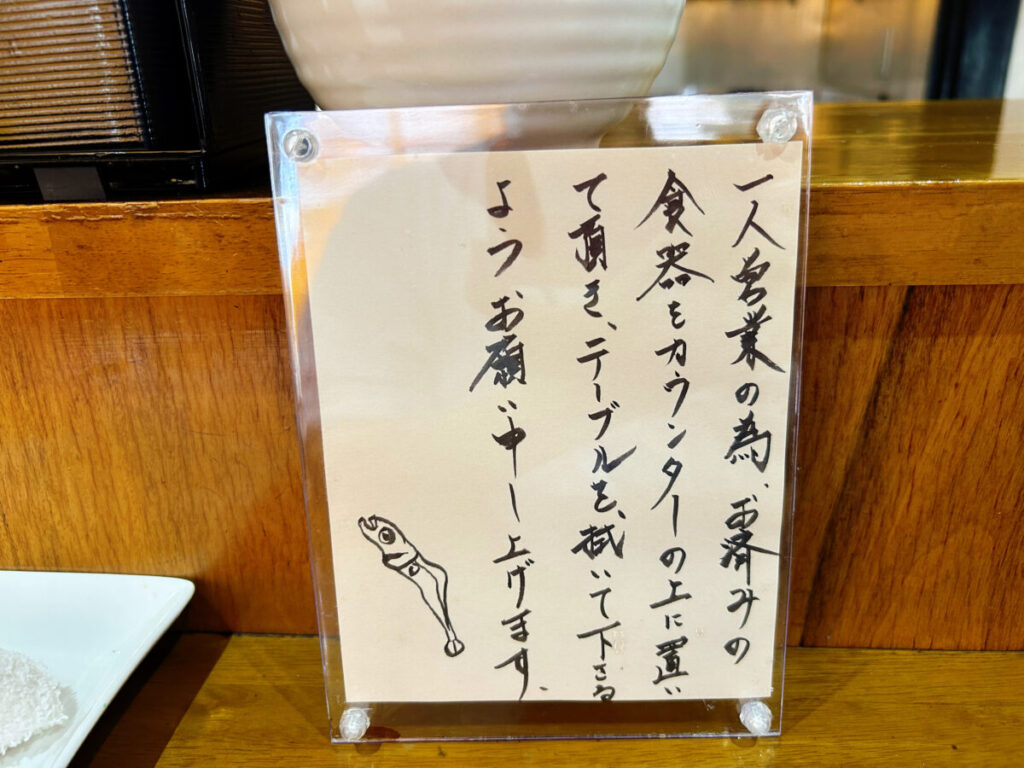 一人営業の為、お済みの
食器をカウンターの上に置い
て頂き、テーブルを、拭いて下さる
ようお願い申し上げます、